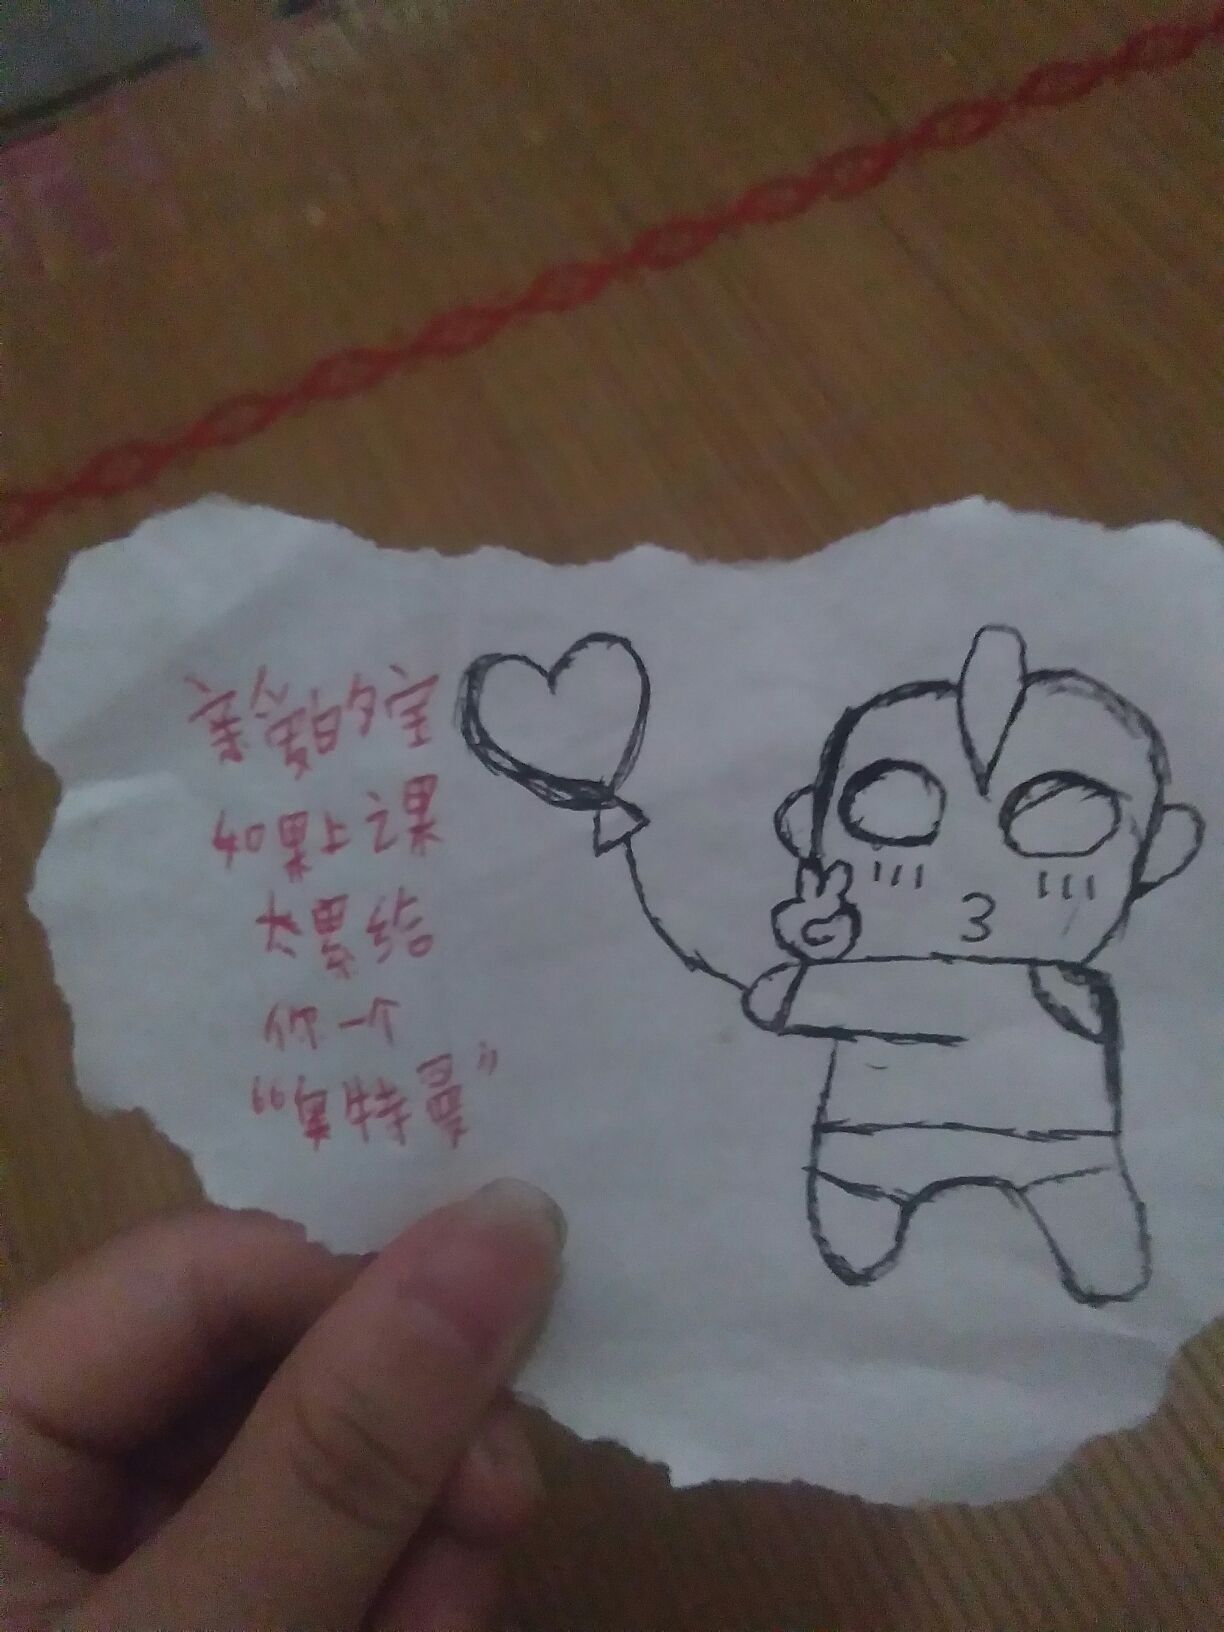 亲爱的宝
如果上之果
太累给
你一个
“奥特曼”